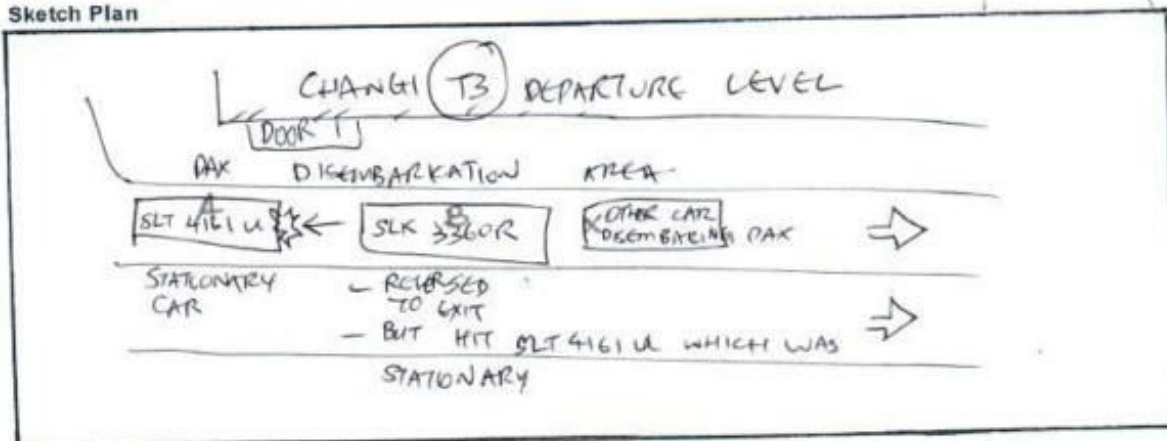 Sketch Plan
CHANGI T3 DEPARTURE LEVEL
DOOR 1
PAX DISEMBARKATION AREA
A
SLT 4161 U
B
SLK 3360R
OTHER CAR
DISEMBARING PAX
STATIONARY
CAR
- REVERSED
TO EXIT
- BUT HIT SLT 4161 U WHICH WAS
STATIONARY